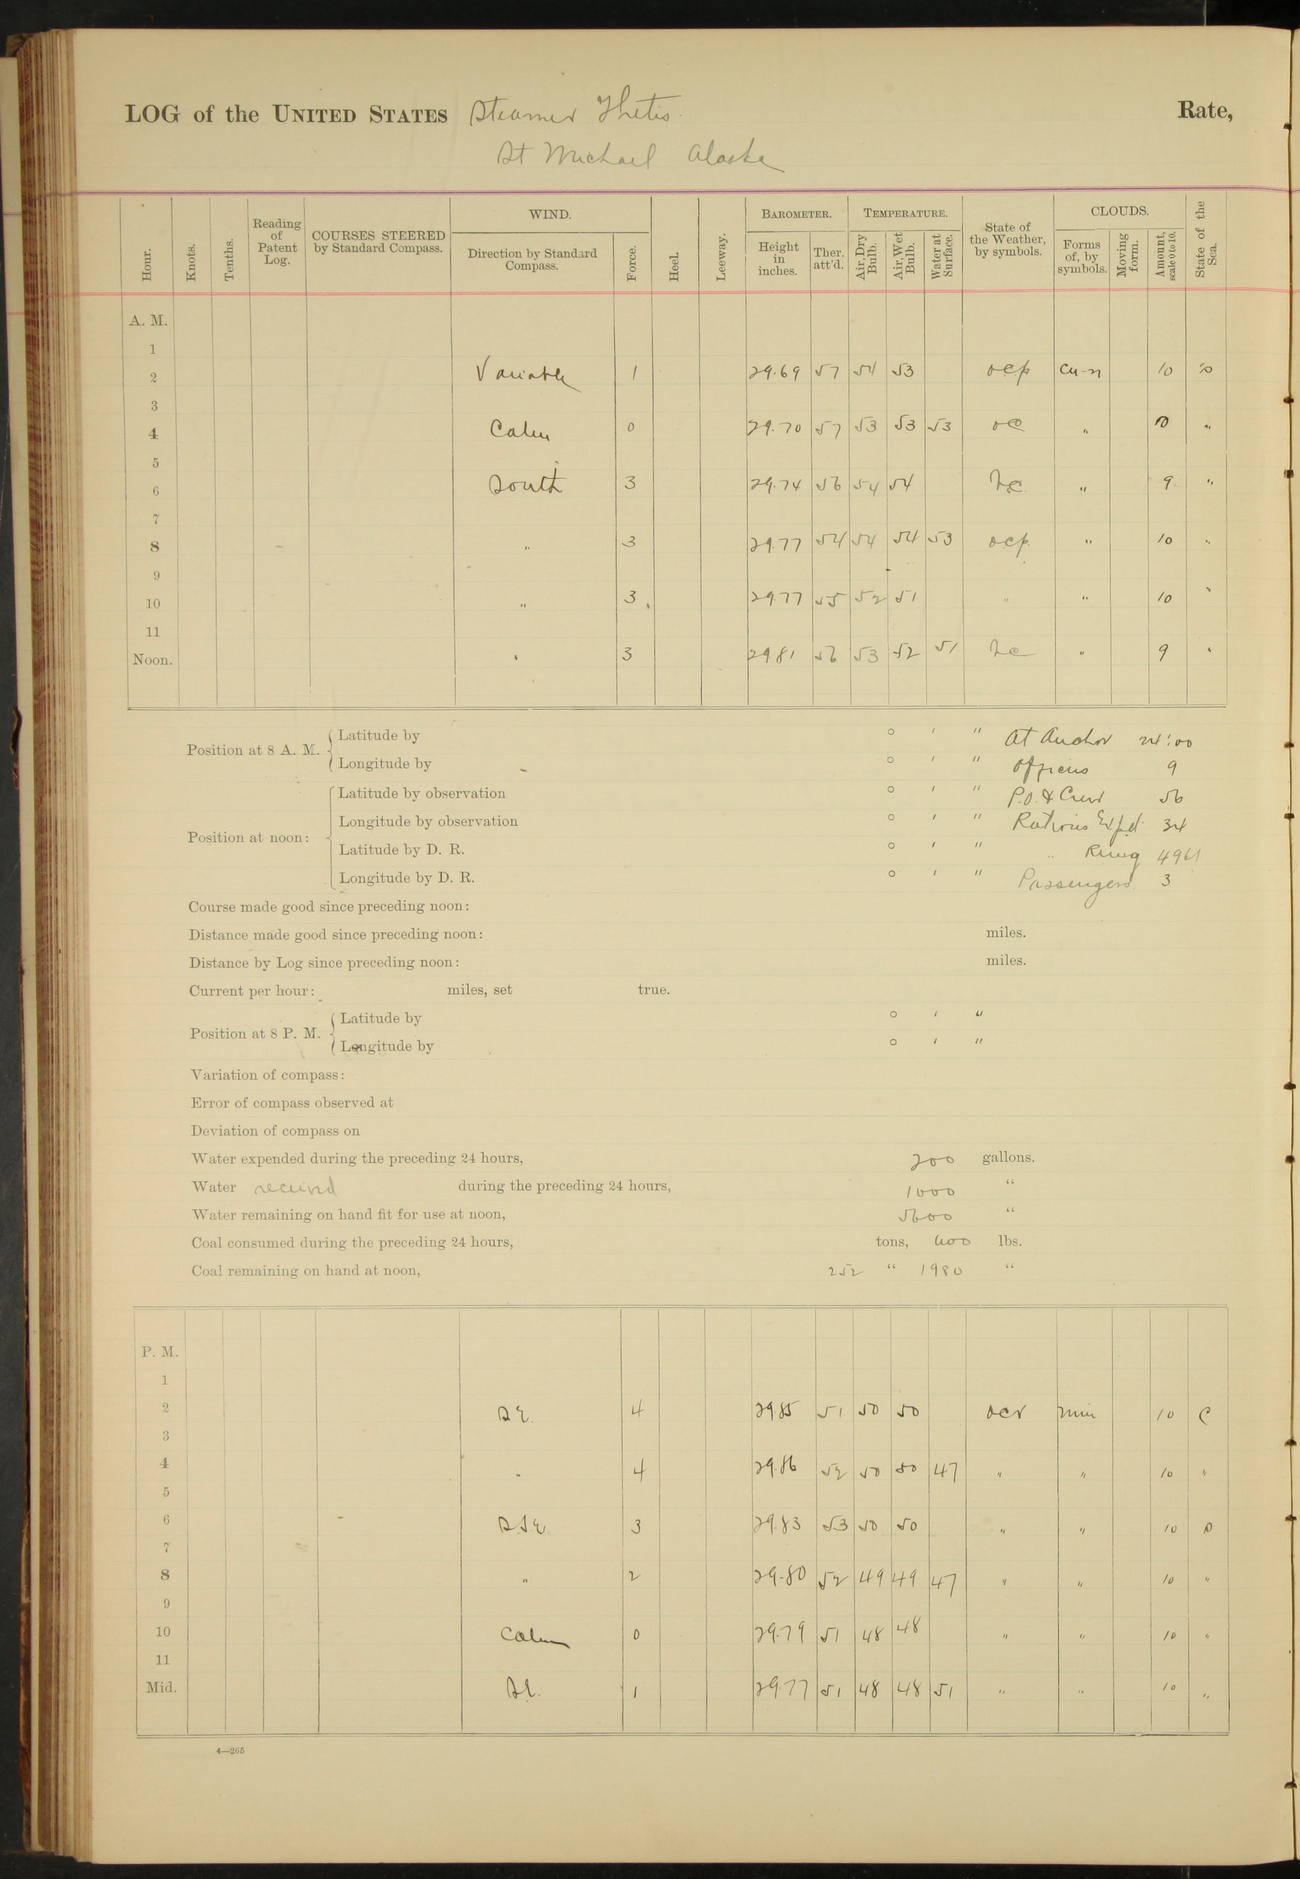 LOG of the UNITED STATES Steamer Thetis Rate,
St Michael Alaska
Hour. Knots. Tenths. Reading of Patent Log. COURSES STEERED by Standard Compass. WIND. Direction by Standard Compass. Force. Heel. Leeway. BAROMETER. Height in inches. Ther. att'd. TEMPERATURE. Air, Dry Bulb. Air, Wet Bulb. Water at Surface. State of the Weather, by symbols. CLOUDS. Forms of, by symbols. Moving form. Amount, scale 0 to 10. State of the Sea.
A. M.
1
2 Variable 1 29.69 57 54 53 ocp Cu-n 10
3
4 Calm 0 29.70 57 53 53 53 oc " 10 "
5
6 South 3 29.74 56 54 54 " 9 "
7
8 " 3 29.77 54 54 54 53 ocp " 10 "
9
10 " 3 2977 55 52 51 " " 10 "
11
Noon. " 3 2981 56 53 52 51 " 9 "
Position at 8 A. M. Latitude by ° ′ ″ At Anchor 24:00
Longitude by ° ′ ″ Officers 9
Position at noon: Latitude by observation ° ′ ″ P.O. & Crew 56
Longitude by observation ° ′ ″ Rations Expd 34
Latitude by D. R. ° ′ ″ " Rmng 4961
Longitude by D. R. ° ′ ″ Passengers 3
Course made good since preceding noon:
Distance made good since preceding noon: miles.
Distance by Log since preceding noon: miles.
Current per hour: miles, set true.
Position at 8 P. M. Latitude by ° ′ ″
Longitude by ° ′ ″
Variation of compass:
Error of compass observed at
Deviation of compass on
Water expended during the preceding 24 hours, 200 gallons.
Water received during the preceding 24 hours, 1000 "
Water remaining on hand fit for use at noon, 5600 "
Coal consumed during the preceding 24 hours, tons, 600 lbs.
Coal remaining on hand at noon, 252 " 1980 "
P. M.
1
2 SE. 4 2985 51 50 50 ocr nim 10 C
3
4 " 4 29.86 52 50 50 47 " " 10 "
5
6 SSE. 3 29.83 53 50 50 " " 10
7
8 " 2 29.80 52 49 49 47 " " 10 "
9
10 Calm 0 29.79 51 48 48 " " 10 "
11
Mid. SE. 1 29.77 51 48 48 51 " " 10 "
4—265